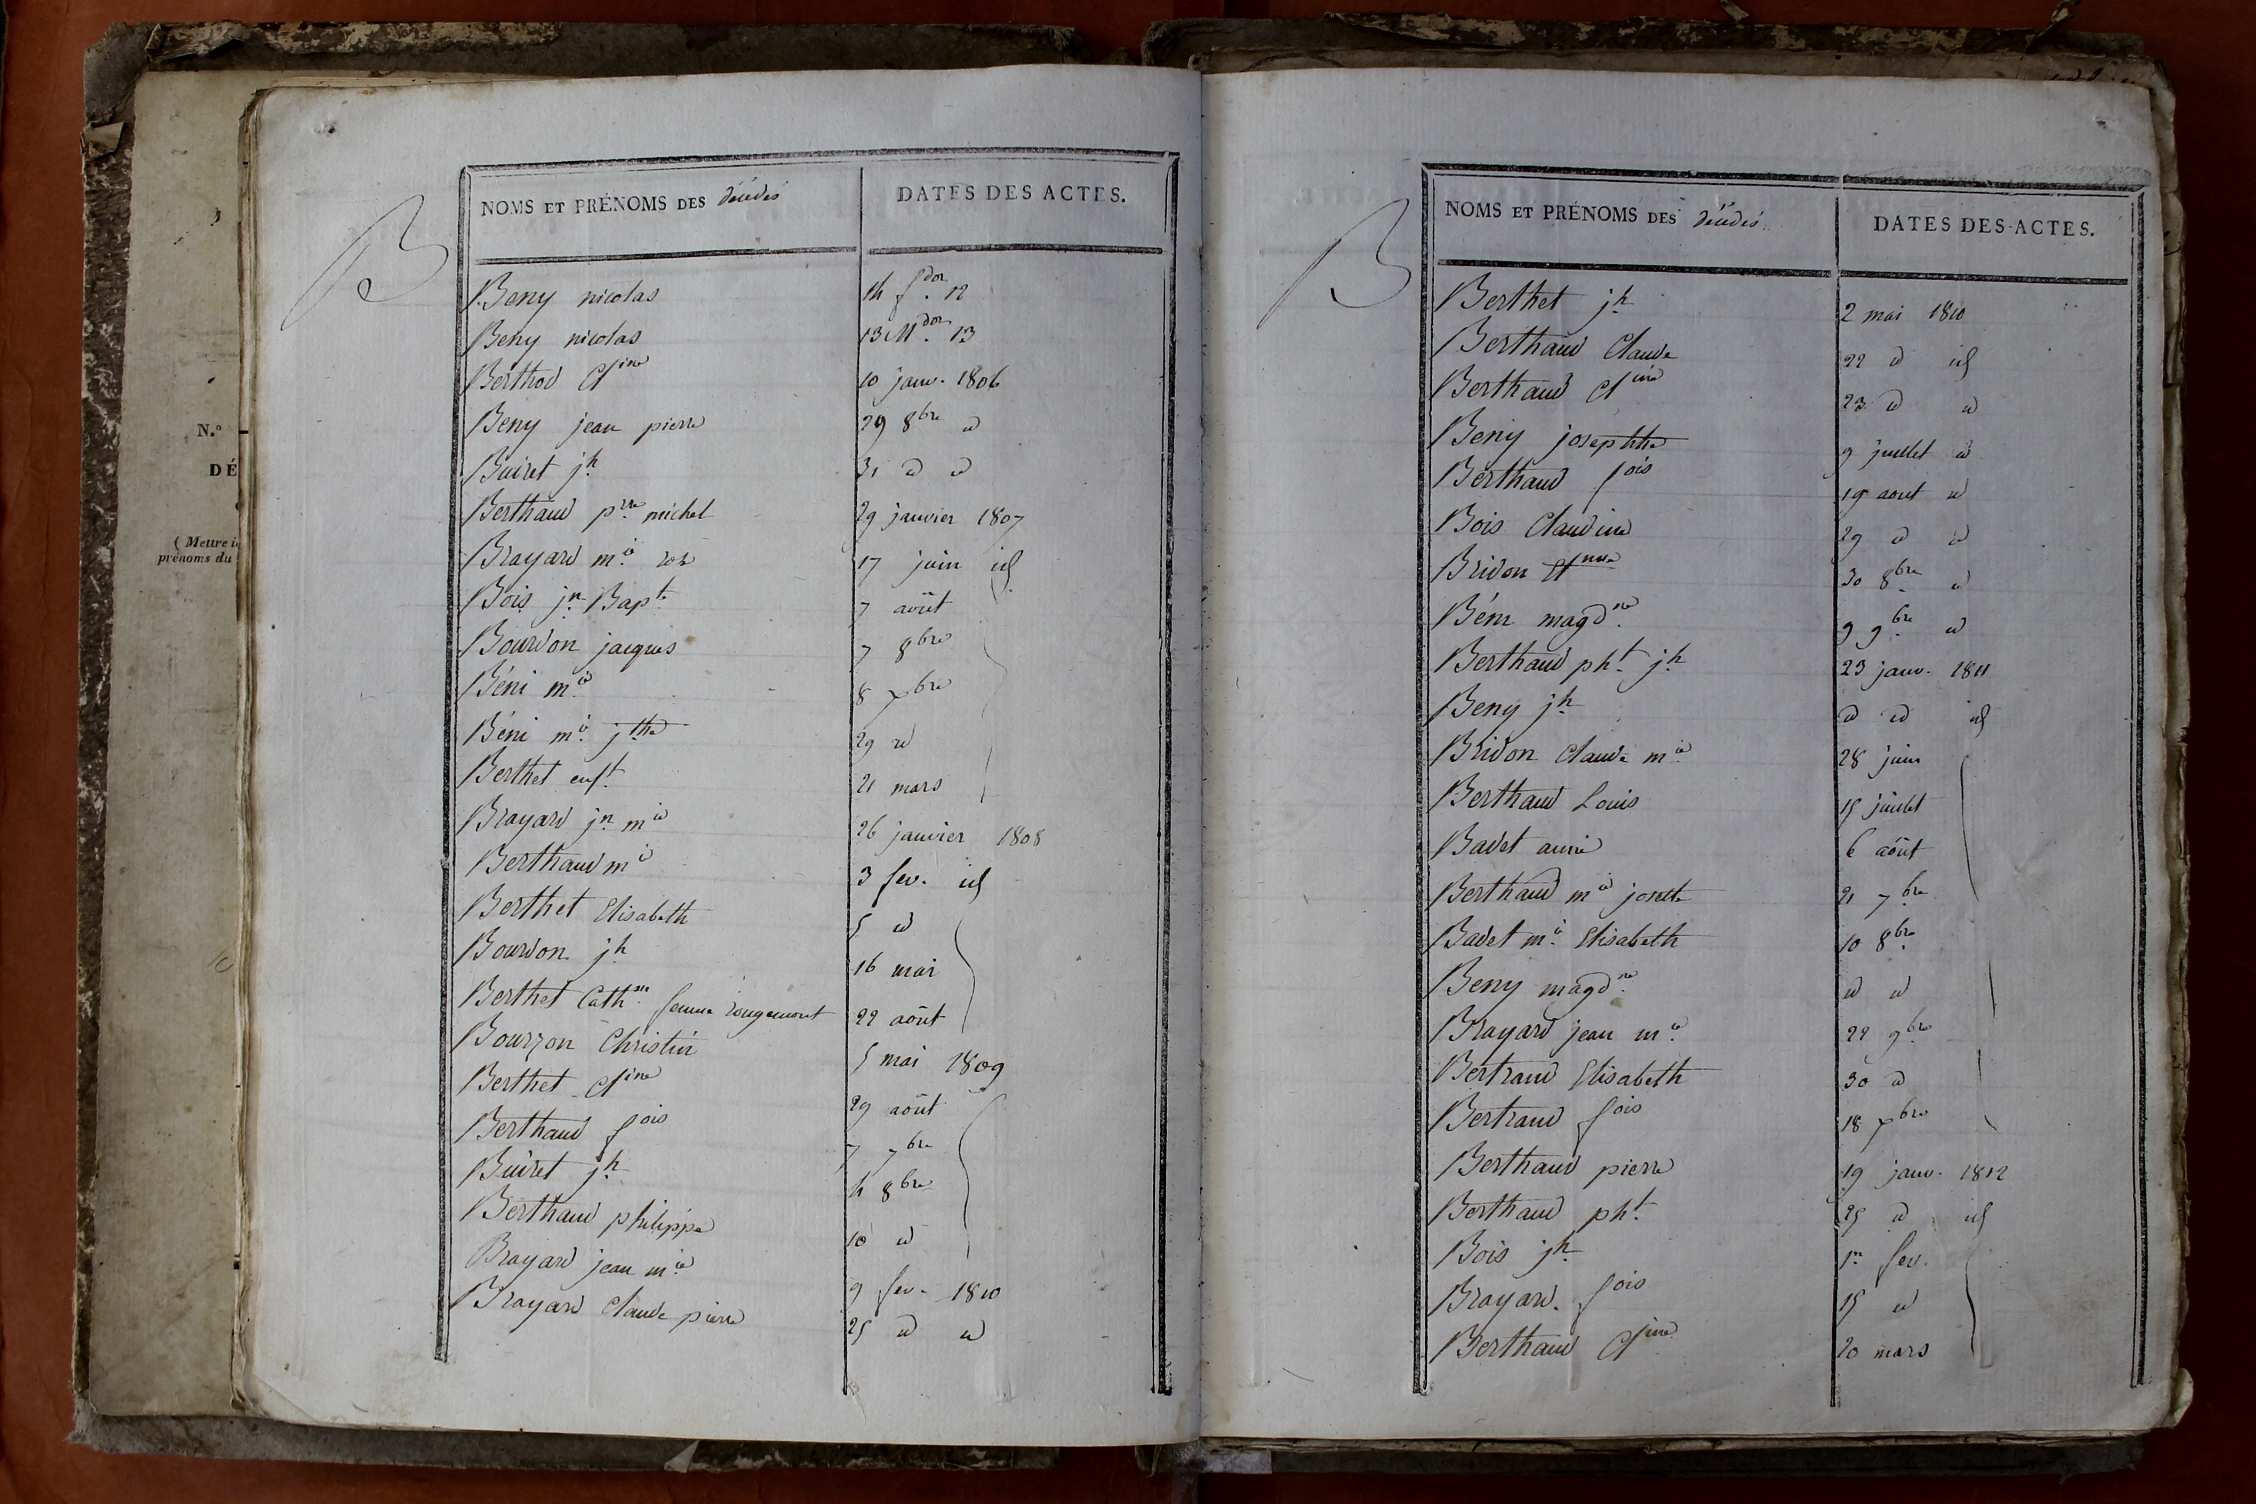 N.º
DÉ
( Mettre i
prénoms du
B
NOMS ET PRÉNOMS DES décédés
DATES DES ACTES.
Beny nicolas 14 f.dor 12
Beny nicolas 13 M.dor 13
Berthod Cl.ine 10 janv. 1806
Beny jean pierre 29 8bre d
Buiret j.h 31 d d
Berthaud p.rre michel 29 janvier 1807
Brayard m.ie 17 juin id
Bois j.n Bap.te 7 août
Bourdon jacques 7 8bre
Béni m.ie 8 xbre
Béni m.ie j.the 29 d
Berthet enf.t 21 mars
Brayard j.n m.ie 26 janvier 1808
Berthaud m.ie 3 fev. id
Berthet Elisabeth 5 d
Bourdon j.h 16 mai
Berthet Cath.ne femme rougemont 22 août
Bourzon Christin 5 mai 1809
Berthet Cl.ine 29 août
Berthaud f.ois 7 7bre
Buiret j.h 4 8bre
Berthaud philippe 10 d
Brayard jean m.ie 9 fev. 1810
Brayard Claude pierre 25 d d
B
NOMS ET PRÉNOMS DES décédés
DATES DES ACTES.
Berthet j.h 2 mai 1810
Berthaud Claude 22 d id
Berthaud Cl.ine 23 d d
Beny josephte 9 juillet d
Berthaud f.ois 19 aout d
Bois Claudine 29 d d
Bridon 30 8bre d
Béni magd.ne 9 9bre d
Berthaud ph.t j.h 23 janv. 1811
Beny j.h d d id
Bridon Claude m.ie 28 juin
Berthaud Louis 15 juillet
Badet anne 6 août
Berthaud m.ie josette 21 7bre
Badet m.ie Elisabeth 10 8bre
Beny magd.ne d d
Brayard jean m.ie 22 9bre
Bertrand Elisabeth 30 d
Bertrand f.ois 18 xbre
Berthaud pierre 19 janv. 1812
Berthaud ph.t 25 d id
Bois j.h 1er fev.
Brayard f.ois 15 d
Berthaud Cl.ine 20 mars